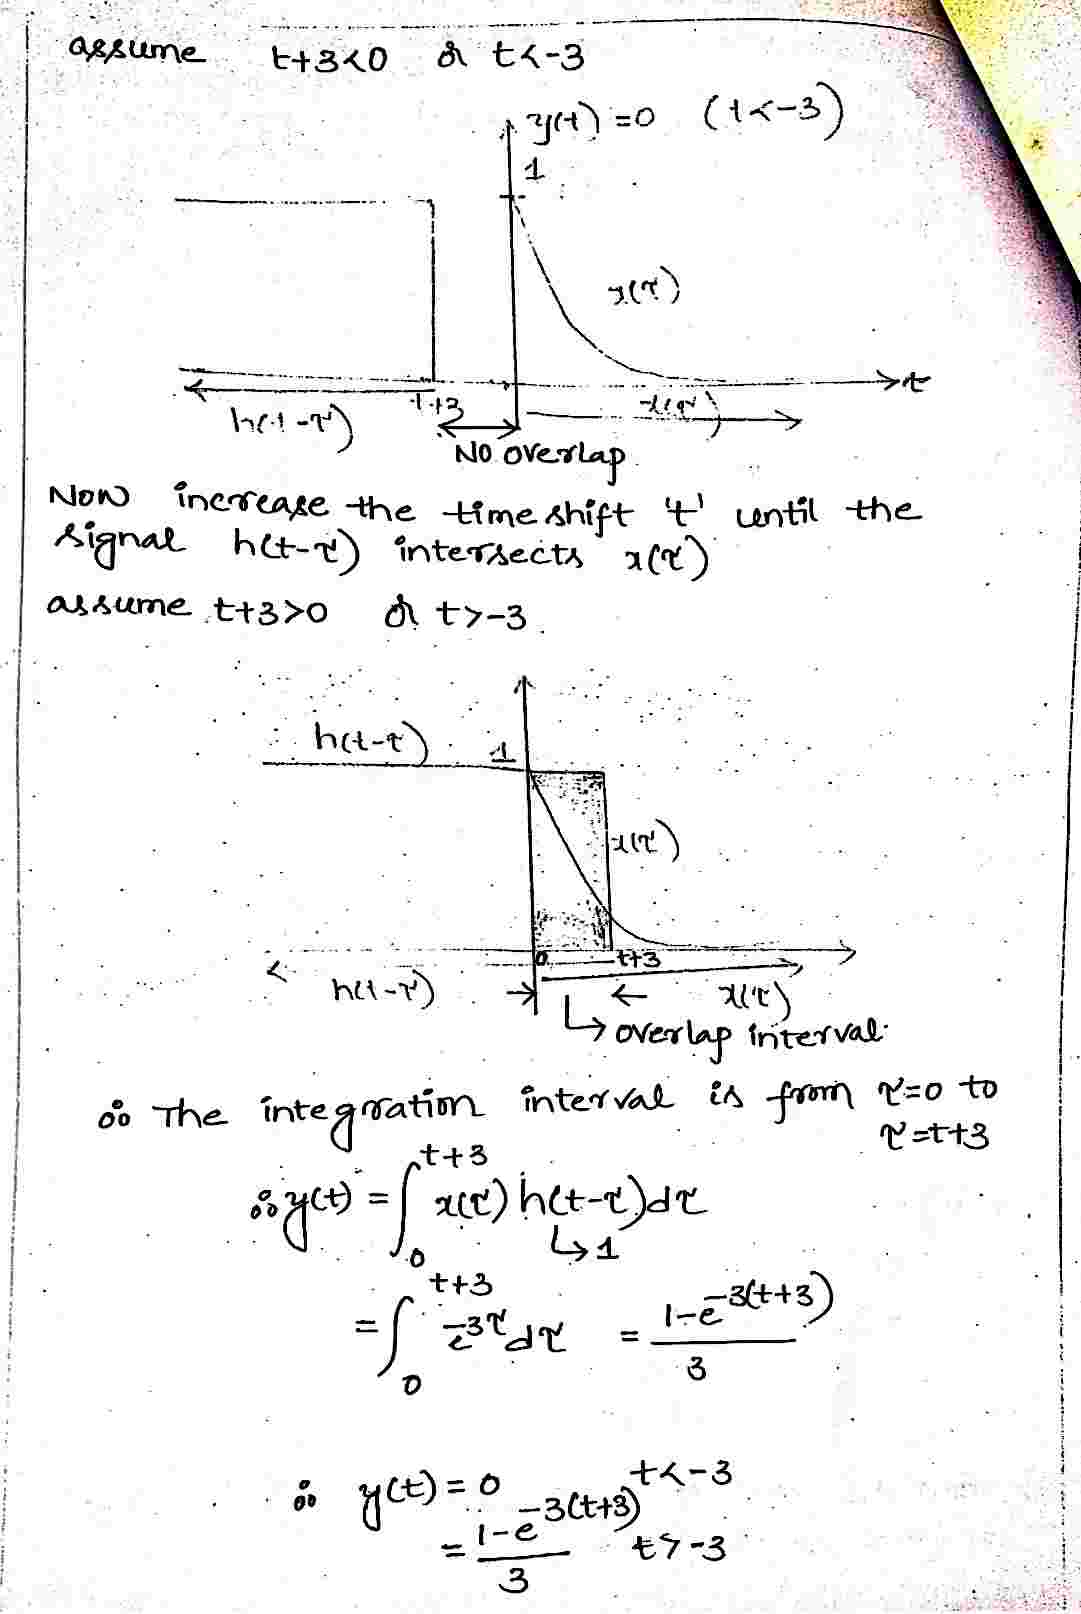 assume t+3<0 or t<-3
y(t)=0 (t<-3)
1
x(τ)
t
t+3
h(t-τ)
x(τ)
No overlap
Now increase the time shift 't' until the
signal h(t-τ) intersects x(τ)
assume t+3>0 or t>-3.
h(t-τ)
1
x(τ)
0
t+3
h(t-τ)
x(τ)
↳ overlap interval
∴ The integration interval is from τ=0 to
τ=t+3
∴ y(t) = ∫₀^{t+3} x(τ) h(t-τ)dτ
↳1
= ∫₀^{t+3} e^{-3τ} dτ = \frac{1-e^{-3(t+3)}}{3}
∴ y(t) = 0 t<-3
= \frac{1-e^{-3(t+3)}}{3} t>-3